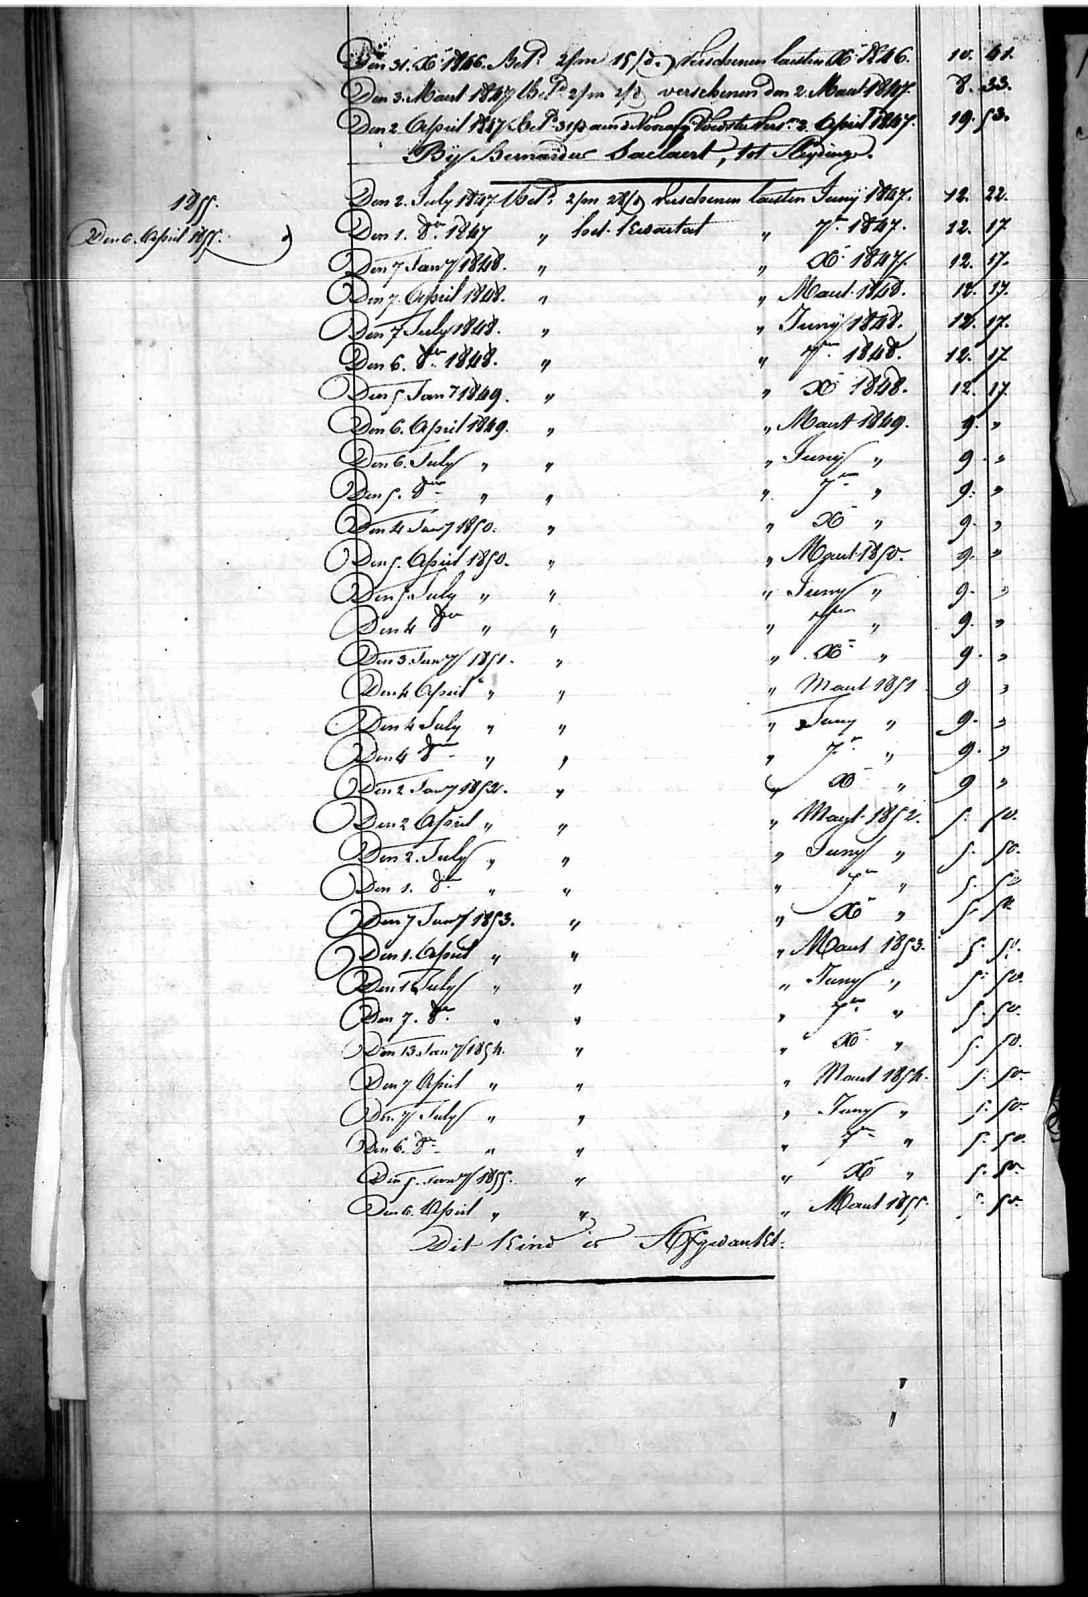 Den 31. Xbr 1846. Betd. 2/m 15/d verschenen lausten Xbr 1846. 10. 41.
Den 3. Maart 1847 Betd. 2/m 2/d verschenen den 2 Maart 1847. 8. 33.
Den 2 April 1847 Betd. 31/d verst. 3. April 1847. 19. 53.
Bij Bernardus Saelaert, tot Sleydinge.
1855.
Den 6. April 1855.
Den 2. July 1847 Betd. 2/m 28/d verschenen lausten Junij 1847. 12. 22.
Den 1. 8er 1847 „ het kwartat „ 7er 1847. 12. 17
Den 7 Jany 1848. „ „ X 1847. 12. 17.
Den 7. April 1848. „ „ Maart 1848. 12. 17.
Den 7 July 1848. „ „ Junij 1848. 12. 17.
Den 6. 8er 1848. „ „ 7er 1848. 12. 17
Den 5 Jany 1849. „ „ X 1848. 12. 17.
Den 6. April 1849. „ „ Maart 1849. 9. „
Den 6. July „ „ „ Junij „ 9. „
Den 5. 8er „ „ „ 7er „ 9. „
Den 4 Jany 1850. „ „ X „ 9. „
Den 5. April 1850. „ „ Maart 1850. 9. „
Den 5 July „ „ „ Juny „ 9. „
Den 4 8er „ „ „ 7er „ 9. „
Den 3 Jany 1851. „ „ X „ 9. „
Den 4 April „ „ „ Maart 1851 9 „
Den 4 July „ „ „ Juny „ 9. „
Den 4 8er „ „ „ 7er „ 9. „
Den 2 Jany 1852. „ „ X „ 9 „
Den 2 April „ „ „ Maart 1852. 5. 50.
Den 2. July „ „ „ Juny „ 5. 50.
Den 1. 8er „ „ „ 7er „ 5. 50
Den 7 Jany 1853. „ „ X „ 5. 50.
Den 1. April „ „ „ Maart 1853. 5. 50.
Den 1 July „ „ „ Juny „ 5. 50.
Den 7. 8er „ „ „ 7er „ 5. 50.
Den 13 Jany 1854. „ „ X „ 5. 50.
Den 7 April „ „ „ Maart 1854. 5. 50.
Den 7 July „ „ „ Juny „ 5. 50.
Den 6. 8er „ „ „ 7er „ 5. 50.
Den 5. Jany 1855. „ „ X „ 5. 50.
Den 6. April „ „ „ Maart 1855. 5. 50.
Dit Kind is Afgedankt.